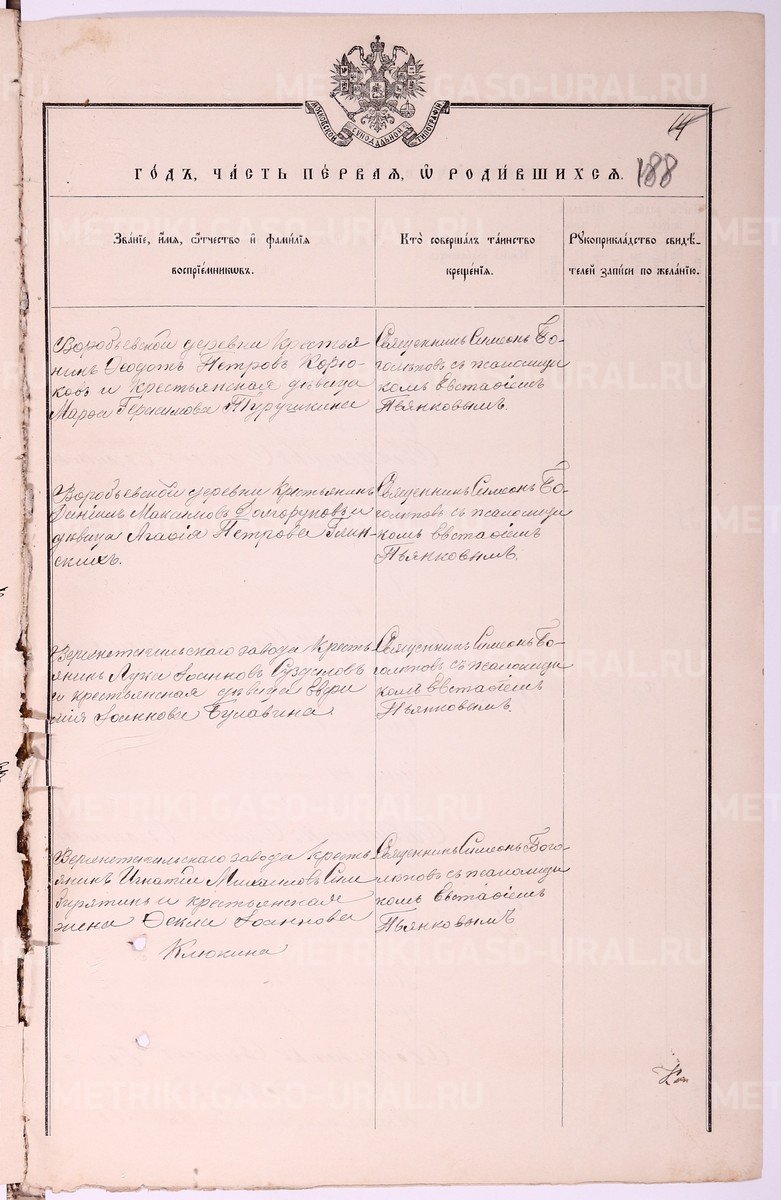 МОСКОВСКОЙ СѴНОДАЛЬНОЙ ТИПОГРАФІИ
14
188
ГО́ДЪ, ЧА́СТЬ ПЕ́РВАЯ, Ѽ РОДИ́ВШИХСЯ.
Зва́нїе, и҆́мя, ѻ҆́тчество и҆ фами́лїя
воспрїе́мникѡвъ.
Кто̀ соверша́лъ та́инство
креще́нїя.
Рꙋкоприкла́дство свидѣ́-
телей за́писи по жела́нїю.
Воробьевской деревни Крестья
нинъ Ѳеодотъ Петровъ Корю-
ковъ и крестьянская дѣвица
Марѳа Герасимова Туручкина
Священникъ Симеонъ Бо-
голюповъ съ псаломщи
комъ Евстафіемъ
Пьянковымъ.
Воробьевской деревни Крестьянинъ
Даніилъ Максимовъ Долгоруковъ и
дѣвица Агафія Петрова Глин-
скихъ.
Священникъ Симеонъ Бо-
голюповъ съ псаломщи
комъ Евстафіемъ
Пьянковымъ.
Верхнетагильскаго завода Кресть
янинъ Лука Іоанновъ Суздаловъ
и крестьянская дѣвица Евѳи
мія Іоаннова Булавина
Священникъ Симеонъ Бо-
голюповъ съ псаломщи
комъ Евстафіемъ
Пьянковымъ.
Верхнетагильскаго завода Кресть
янинъ Игнатій Михаиловъ
и крестьянская
жена Ѳекла Іоаннова
Клюкина
Священникъ Симеонъ Бого-
люповъ съ псаломщи
комъ Евстафіемъ
Пьянковымъ
METRIKI.GASO-URAL.RU